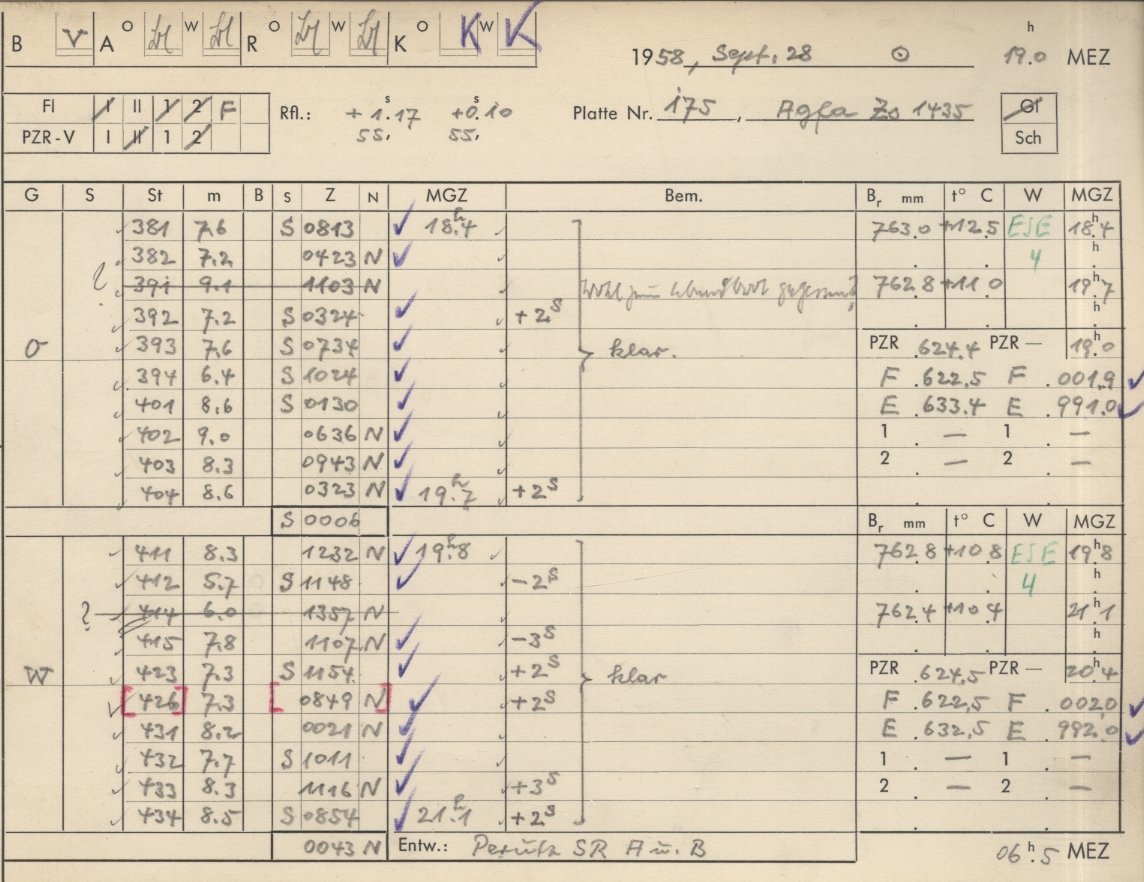 B V A O W R O W K O K W K
1958, Sept. 28 ⊙ 19.0 h MEZ
Fl I II 1 2 F
PZR-V I II 1 2
Rfl.: +1.17 s +0.10 s
55, 55,
Platte Nr. 175, Agfa Zs 1435
Gl
Sch
G S St m B S Z N MGZ Bem. Br mm t° C W MGZ
381 7.6 S 0813 ✓ 18.4 h 763.0 +12.5 ESE 18.4 h
382 7.2 0423 N ✓ 4 h
391 9.1 1103 N 762.8 +11.0 19.7 h
392 7.2 S 0324 ✓ +2 s h
O 393 7.6 S 0734 ✓ klar. PZR 624.4 PZR — 19.0 h
394 6.4 S 1024 ✓ F 622.5 F 001.9 ✓
401 8.6 S 0130 ✓ E 633.4 E 991.0 ✓
402 9.0 0636 N ✓ 1 — 1 —
403 8.3 0943 N ✓ 2 — 2 —
404 8.6 0323 N ✓ 19.7 h +2 s
S 0006 Br mm t° C W MGZ
411 8.3 1232 N ✓ 19.8 h 762.8 +10.8 ESE 19.8 h
412 5.7 S 1148 ✓ -2 s 4 h
? 414 6.0 1357 N 762.4 +10.4 21.1 h
415 7.8 1107 N ✓ -3 s h
W 423 7.3 S 1154 ✓ +2 s klar PZR 624.5 PZR — 20.4 h
[426] 7.3 [0849 N] ✓ +2 s F 622.5 F 002.0 ✓
431 8.2 0021 N ✓ E 632.5 E 992.0 ✓
432 7.7 S 1011 ✓ 1 — 1 —
433 8.3 1116 N ✓ +3 s 2 — 2 —
434 8.5 S 0854 ✓ 21.1 h +2 s
0043 N Entw.: Perutz SR A u. B 06.5 h MEZ